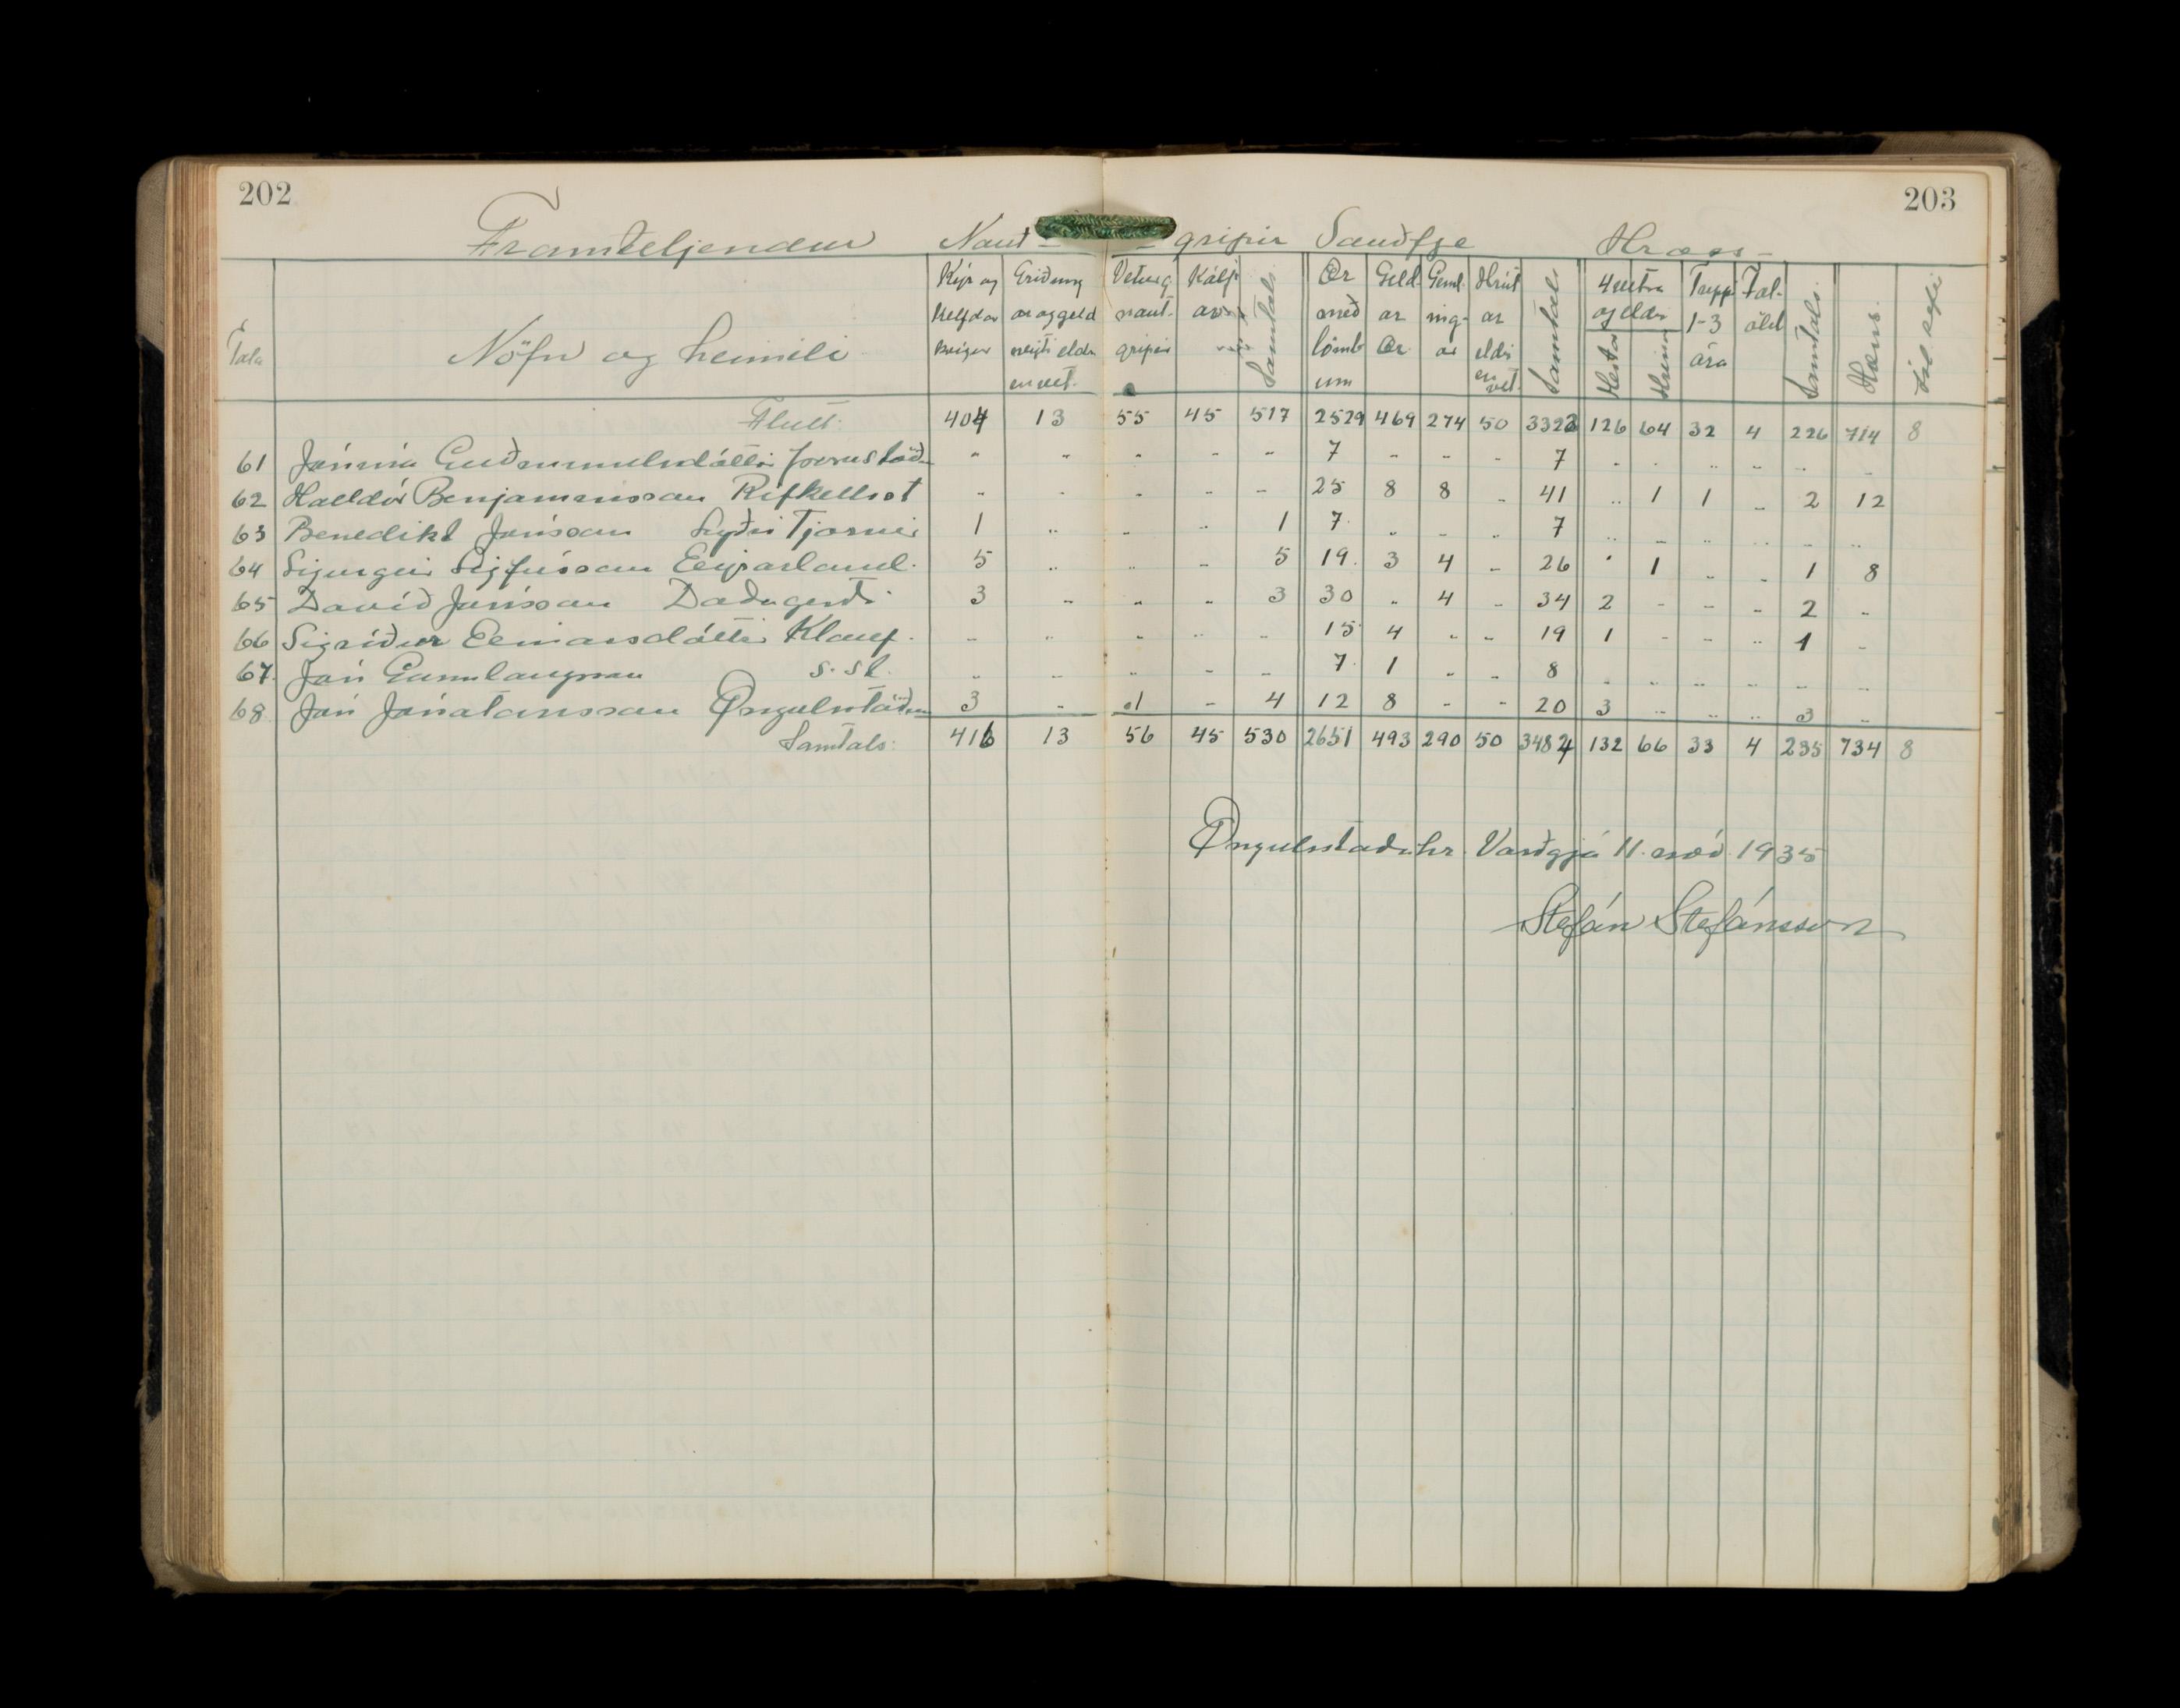 202
203
Framteljendur Naut- -gripir Sauðfje Hross-
Tala Nöfn og heimili Kýr og kelfdar kvígur Griðung ar og geld neyti eldri en vet. Veturg. naut- gripir Kálf ar Samtals Ær með lömb um Geld ar Ær Geml- ing- ar Hrút ar eldri en vet. Samtals 4 vetra og eldri Hestar Hryssur Tripp 1-3 ára Fol- öld Samtals Hæns.
Flutt: 404 13 55 45 517 2529 469 274 50 3323 126 64 32 4 226 714 8
61 Jónína Guðmundsdóttir Þórustöð. " " " " " 7 " " " 7 " " " " " "
62 Halldór Benjamínsson Rifkellsst " " " " " 25 8 8 " 41 " 1 1 " 2 12
63 Benedikt Jónsson Syðri Tjörnir 1 " " " 1 7 " " " 7 " " " " " "
64 Sigurgeir Sigfússon Eyjarland. 5 " " " 5 19 3 4 " 26 " 1 " " 1 8
65 Davíð Jónsson Daðagerði 3 " " " 3 30 " 4 " 34 2 " " " 2 "
66 Sigríður Einarsdóttir Klauf. " " " " " 15 4 " " 19 1 " " " 1 "
67. Jón Gunnlaugsson s. st. " " " " " 7 1 " " 8 " " " " " "
68 Jón Jónatansson Öngulsstöðum 3 " 1 " 4 12 8 " " 20 3 " " " 3 "
Samtals: 416 13 56 45 530 2651 493 290 50 3484 132 66 33 4 235 734 8
Öngulsstaðahr. Varðgjá 11. nóv. 1935
Stefán Stefánsson